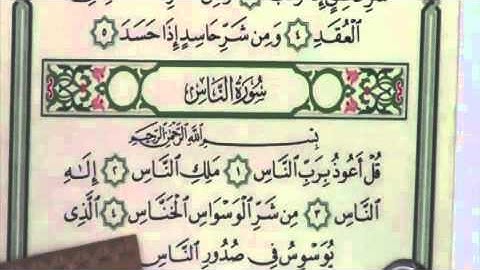 ٱلْعُقَدِ ٤ وَمِن شَرِّ حَاسِدٍ إِذَا حَسَدَ ٥
سُورَةُ النَّاسِ
بِسْمِ ٱللَّهِ ٱلرَّحْمَٰنِ ٱلرَّحِيمِ
قُلْ أَعُوذُ بِرَبِّ ٱلنَّاسِ ١ مَلِكِ ٱلنَّاسِ ٢ إِلَٰهِ
ٱلنَّاسِ ٣ مِن شَرِّ ٱلْوَسْوَاسِ ٱلْخَنَّاسِ ٤ ٱلَّذِى
يُوَسْوِسُ فِى صُدُورِ ٱلنَّاسِ